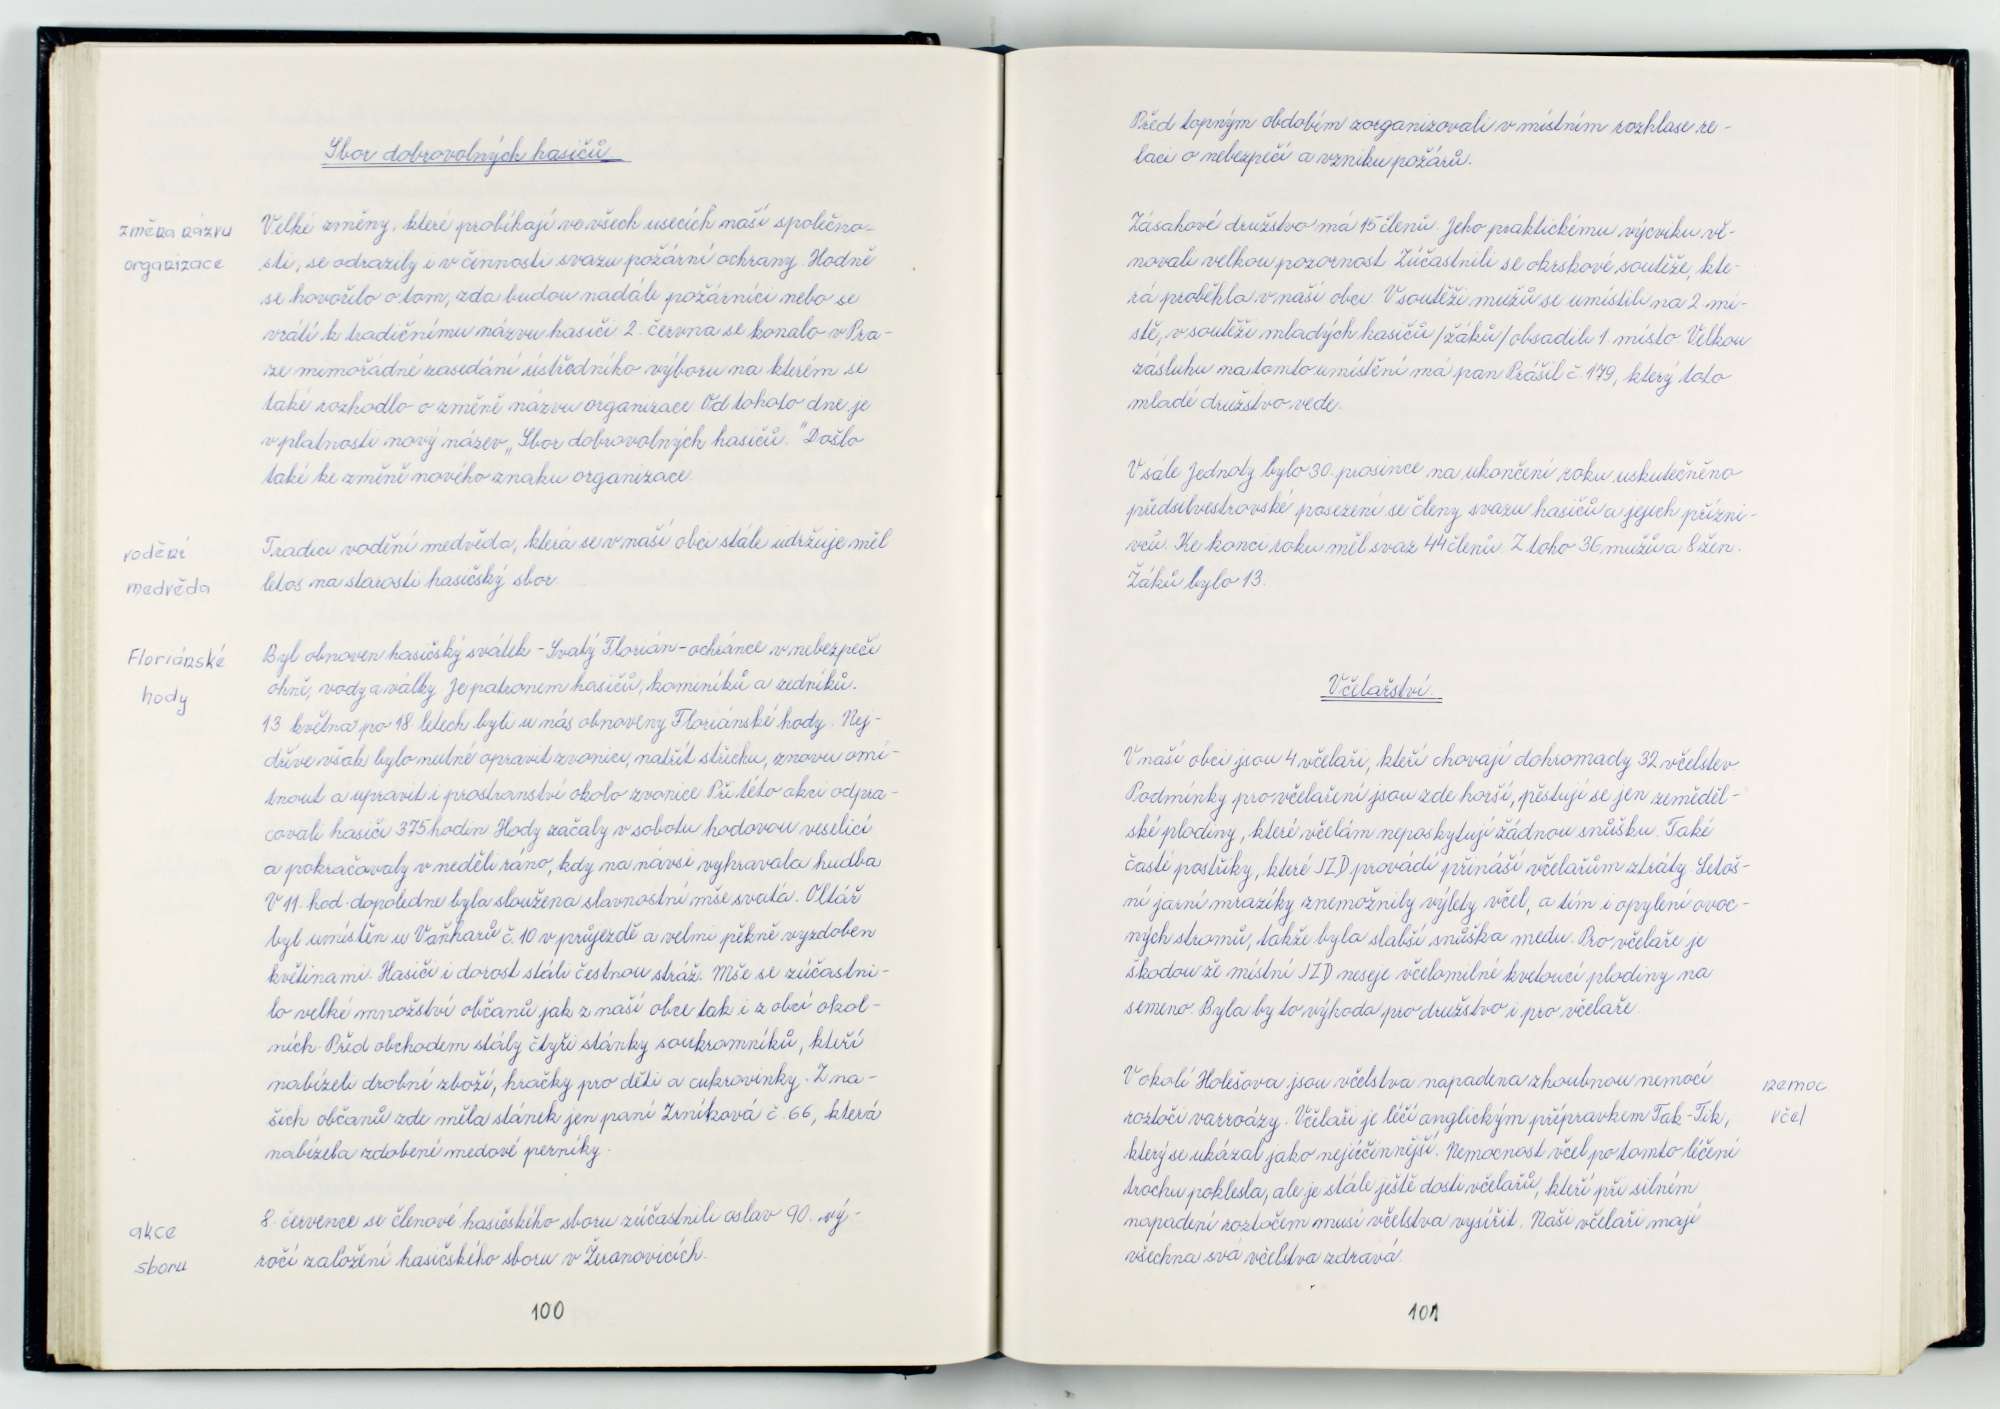 Sbor dobrovolných hasičů
změna názvu
organizace
Velké změny, které probíhají ve všech usecích naší společno-
sti, se odrazily i v činnosti svazu požární ochrany. Hodně
se hovořilo o tom, zda budou nadále požárníci nebo se
vrátí k tradičnímu názvu hasiči. 2. června se konalo v Pra-
ze mimořádné zasedání ústředního výboru na kterém se
také rozhodlo o změně názvu organizace. Od tohoto dne je
v platnosti nový název „Sbor dobrovolných hasičů." Došlo
také ke změně nového znaku organizace.
vodění
medvěda
Tradici vodění medvěda, která se v naší obci stále udržuje měl
letos na starosti hasičský sbor.
Floriánské
hody
Byl obnoven hasičský svátek - Svatý Florián - ochránce v nebezpečí
ohně, vody a války. Je patronem hasičů, kominíků a zedníků.
13 května po 18 letech byli u nás obnoveny Floriánské hody. Nej-
dříve však bylo nutné opravit zvonici, natřít střechu, znovu omí-
tnout a upravit i prostranství okolo zvonice. Při této akci odpra-
covali hasiči 375 hodin. Hody začaly v sobotu hodovou veselicí
a pokračovaly v neděli ráno, kdy na návsi vyhravala hudba
V 11. hod. dopoledne byla sloužena slavnostní mše svatá. Oltář
byl umístěn u Vaňharů č. 10 v průjezdě a velmi pěkně vyzdoben
květinami. Hasiči i dorost stáli čestnou stráž. Mše se zúčastni-
lo velké množství občanů jak z naší obce tak i z obcí okol-
ních. Před obchodem stály čtyři stánky soukromníků, kteří
nabízeli drobné zboží, hračky pro děti a cukrovinky. Z na-
šich občanů zde měla stánek jen paní Zrníková č. 66, která
nabízela zdobené medové perníky.
akce
sboru
8. července se členové hasičského sboru zúčastnili oslav 90. vý-
ročí založení hasičského sboru v Žeranovicích.
100
Před topným obdobím zorganizovali v místním rozhlase re-
laci o nebezpečí a vzniku požárů.
Zásahové družstvo má 15 členů. Jeho praktickému výcviku vě-
novali velkou pozornost. Zúčastnili se okrskové soutěže, kte-
rá proběhla v naší obci. V soutěži mužů se umístili na 2. mí-
stě, v soutěži mladých hasičů /žáků/ obsadili 1. místo. Velkou
zásluhu na tomto umístění má pan Prášil č. 179, který toto
mladé družstvo vede.
V sále Jednoty bylo 30. prosince na ukončení roku uskutečněno
předsilvestrovské posezení se členy svazu hasičů a jejich přízni-
vců. Ke konci roku měl svaz 44 členů. Z toho 36 mužů a 8 žen.
Žáků bylo 13.
Včelařství.
V naší obci jsou 4 včelaři, kteří chovají dohromady 32 včelstev.
Podmínky pro včelaření jsou zde horší, pěstují se jen zeměděl-
ské plodiny, které včelám neposkytují žádnou snůšku. Také
časté postřiky, které JZD provádí přináší včelařům ztráty. Letoš-
ní jarní mrazíky znemožnily výlety včel, a tím i opylení ovoc-
ných stromů, takže byla slabší snůška medu. Pro včelaře je
škodou že místní JZD neseje včelomilné kvetoucí plodiny na
semeno. Byla by to výhoda pro družstvo i pro včelaře.
nemoc
včel
V okolí Holešova jsou včelstva napadena zhoubnou nemocí
roztoči varroázy. Včelaři je léčí anglickým přípravkem Tak-Tik,
který se ukázal jako nejúčinnější. Nemocnost včel po tomto léčení
trochu poklesla, ale je stále ještě dosti včelařů, kteří při silném
napadení roztočem musí včelstva vysířit. Naši včelaři mají
všechna svá včelstva zdravá.
101